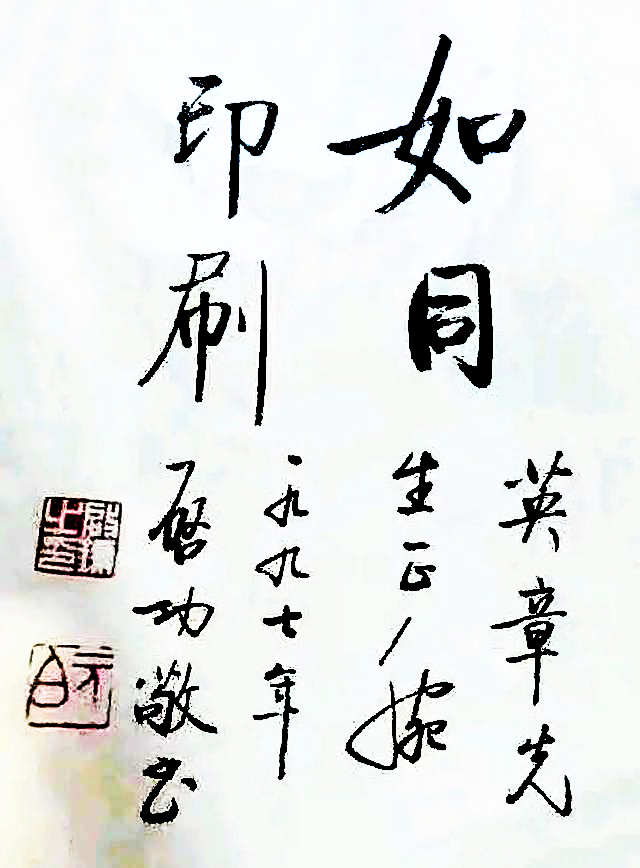 如同
印刷
英章先
生正腕
一九九七年
啓功敬书
元白